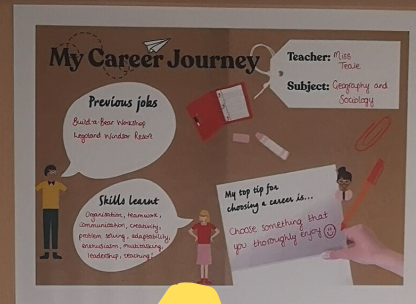 My Career Journey
Teacher: Miss
Teale
Subject: Geography and
Sociology
Previous jobs
Build-a-Bear Workshop
Legoland Windsor Resort
Skills learnt
Organisation, teamwork,
communication, creativity,
problem solving, adaptability,
enthusiasm, multitasking,
leadership, teaching
My top tip for
choosing a career is...
Choose something that
you thoroughly enjoy